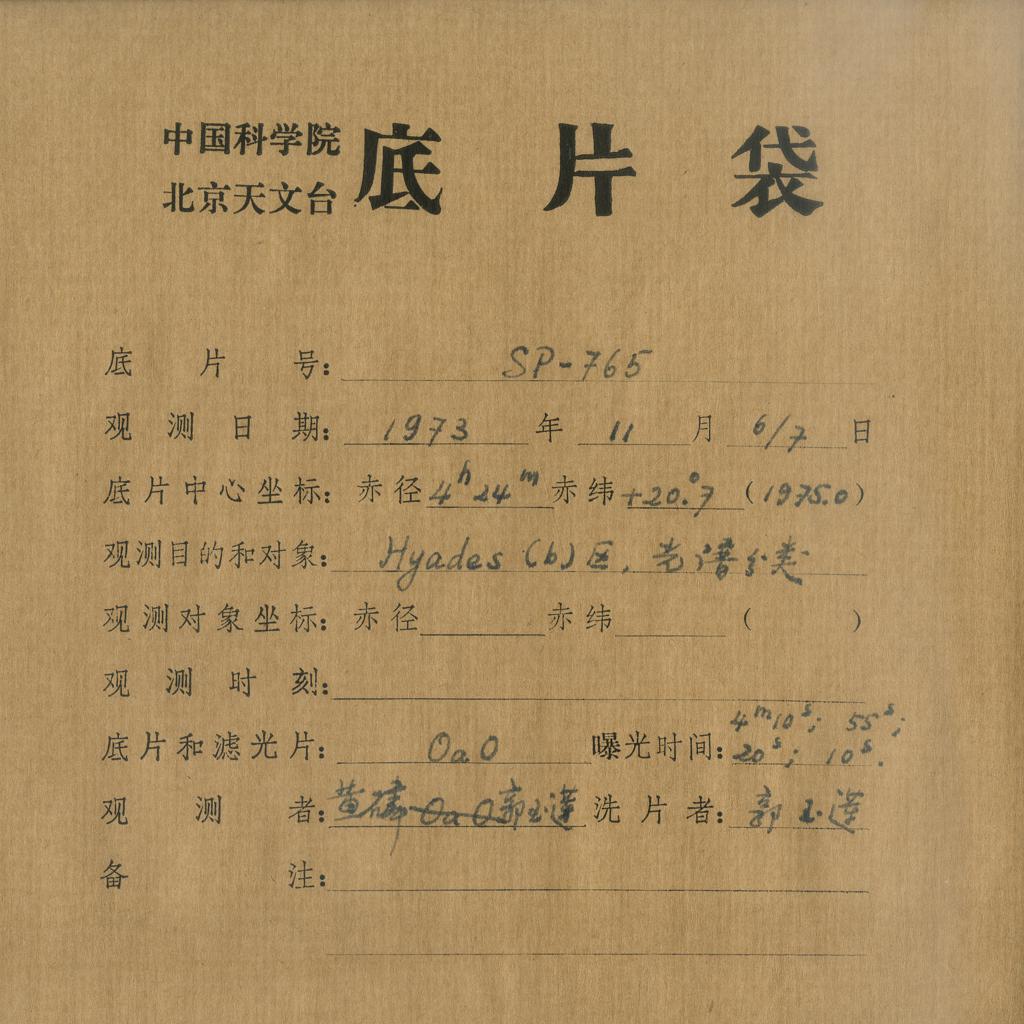 中国科学院
北京天文台
底片袋
底片号：SP-765
观测日期：1973年11月6/7日
底片中心坐标：赤径4ʰ24ᵐ赤纬+20.°7（1975.0）
观测目的和对象：Hyades (b)区，光谱分类
观测对象坐标：赤径 赤纬 （ ）
观测时刻：
底片和滤光片：OaO 曝光时间：4ᵐ10ˢ; 55ˢ;
20ˢ; 10ˢ.
观测者：黄磷 OaO 郭玉莲 洗片者：郭玉莲
备注：